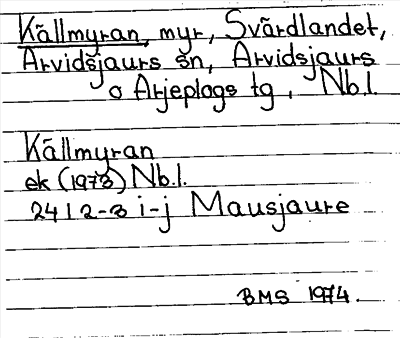 Källmyran, myr, Svärdlandet,
Arvidsjaurs sn, Arvidsjaurs
o Arjeplogs tg, Nb.l.
Källmyran
ek (1973) Nb.l.
24 I 2-3 i-j Mausjaure
BMS 1974.